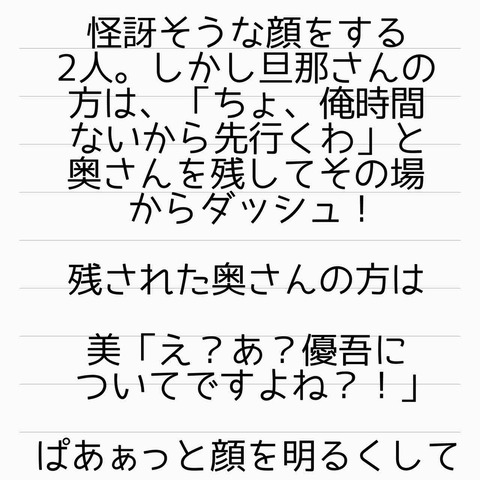 怪訝そうな顔をする
2人。しかし旦那さんの
方は、「ちょ、俺時間
ないから先行くわ」と
奥さんを残してその場
からダッシュ！
残された奥さんの方は
美「え？あ？優吾に
ついてですよね？！」
ぱあぁっと顔を明るくして